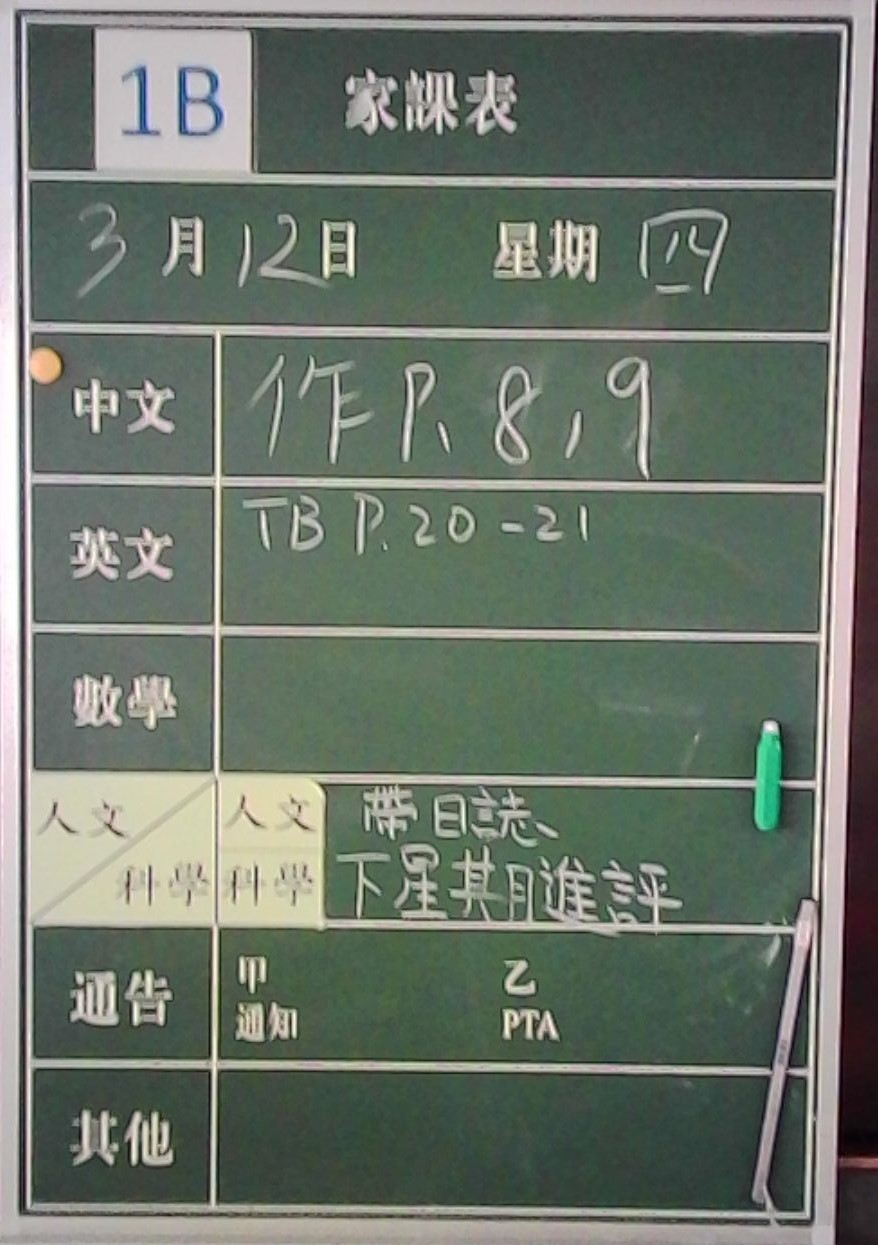 1B 家課表
3月12日 星期四
中文 作P. 8, 9
英文 TB P. 20-21
數學
人文 人文 帶日誌、
科學 科學 下星期進評
通告 甲 乙
通知 PTA
其他